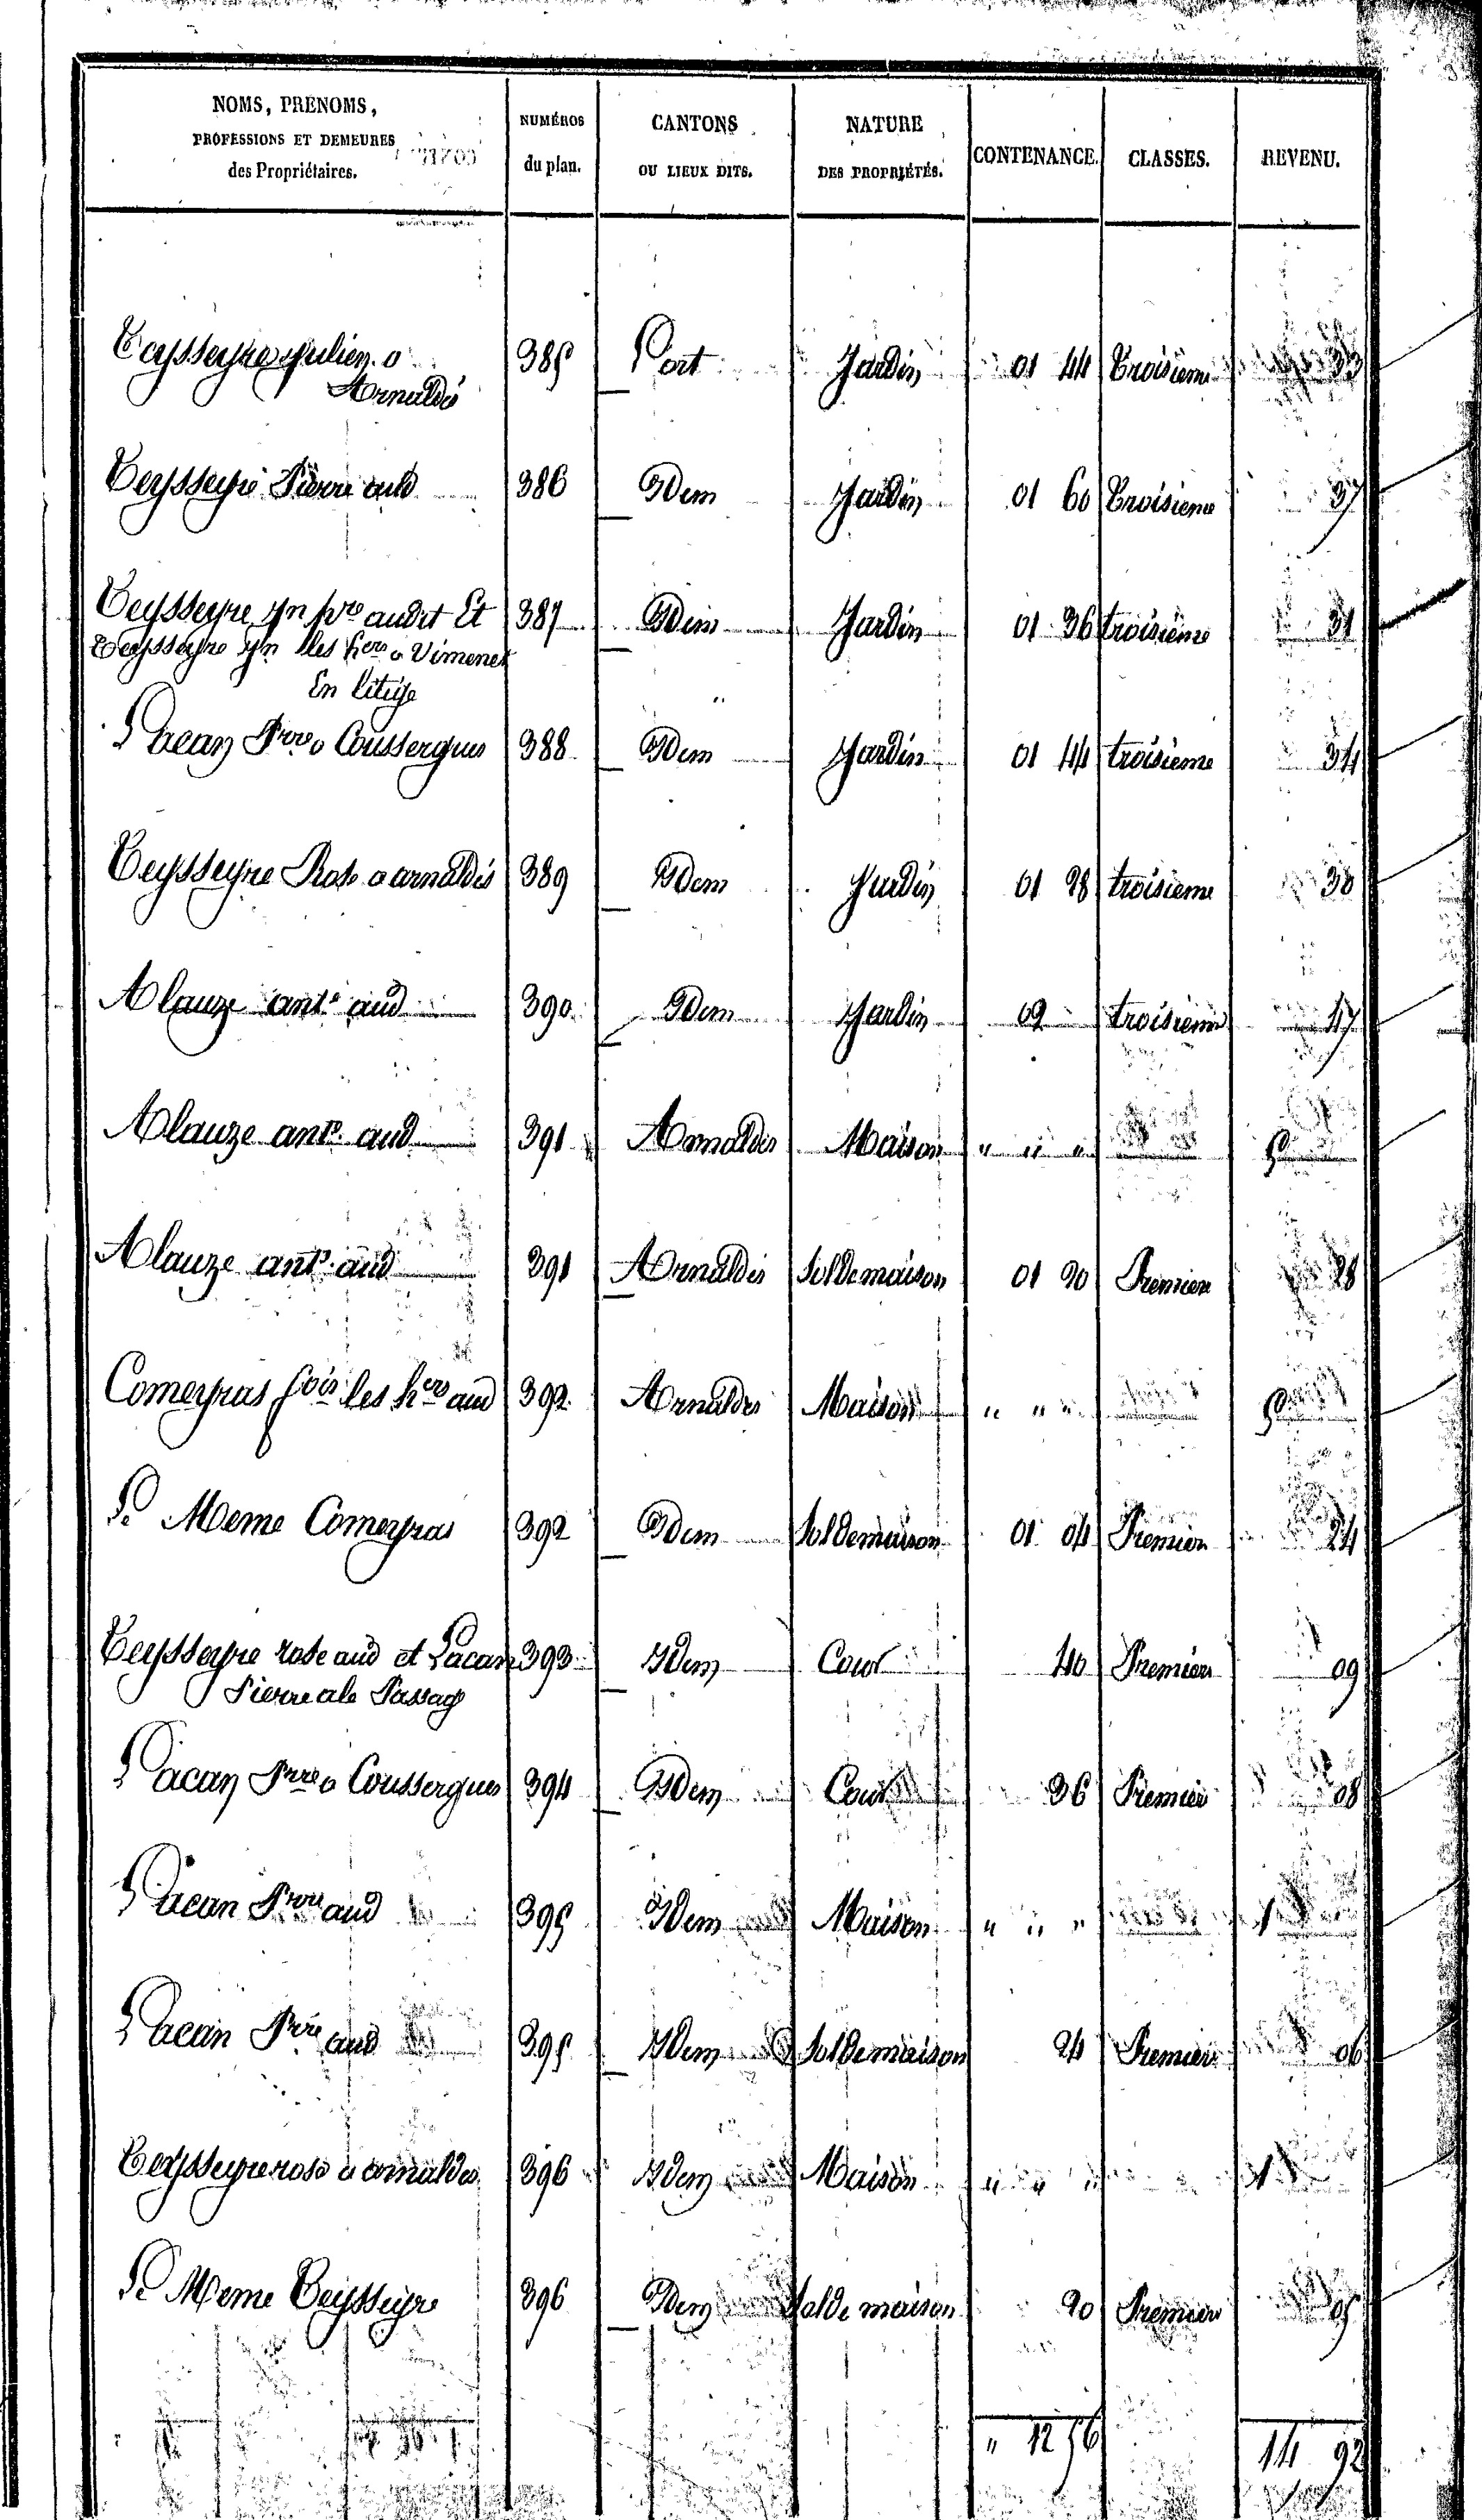 NOMS, PRENOMS, PROFESSIONS ET DEMEURES des Propriétaires. | NUMÉROS du plan. | CANTONS OU LIEUX DITS. | NATURE DES PROPRIÉTÉS. | CONTENANCE. | CLASSES. | REVENU.
Teysseyre Julien a 385 Port Jardin 01 44 Troisieme 33
Arnaldés
Teysseyre Pierre aud 386 Idem Jardin 01 60 Troisieme 37
Teysseyre Jn pre audit Et 387 Idem Jardin 01 36 troisieme 31
Teysseyre Jn les hers a Vimenet
En litige
Lacan Prre a Coussergues 388 Idem Jardin 01 44 troisieme 34
Teysseyre Rose a arnaldés 389 Idem Jardin 01 28 troisieme 30
Alauze ante aud 390 Idem Jardin 02 troisieme 47
Alauze ant. aud 391 Arnaldés Maison " " " 5
Alauze ant. aud 391 Arnaldés Sol de maison 01 20 Premier 28
Comeyras fois les hers aud 392 Arnaldés Maison " " " 5
Le Meme Comeyras 392 Idem Sol de maison 01 04 Premier 24
Teysseyre rose aud et Lacan 393 Idem Cour 40 Premier 09
Pierre ale Passage
Lacan Prre a Coussergues 394 Idem Cour 36 Premier 08
Lacan Prre aud 395 Idem Maison " " "
Lacan Prre aud 395 Idem Sol de maison 24 Premier 06
Teysseyre rose a arnaldes 396 Idem Maison " " "
Le Meme Teysseyre 396 Idem Sol de maison 20 Premier 05
" 12 56 14 92